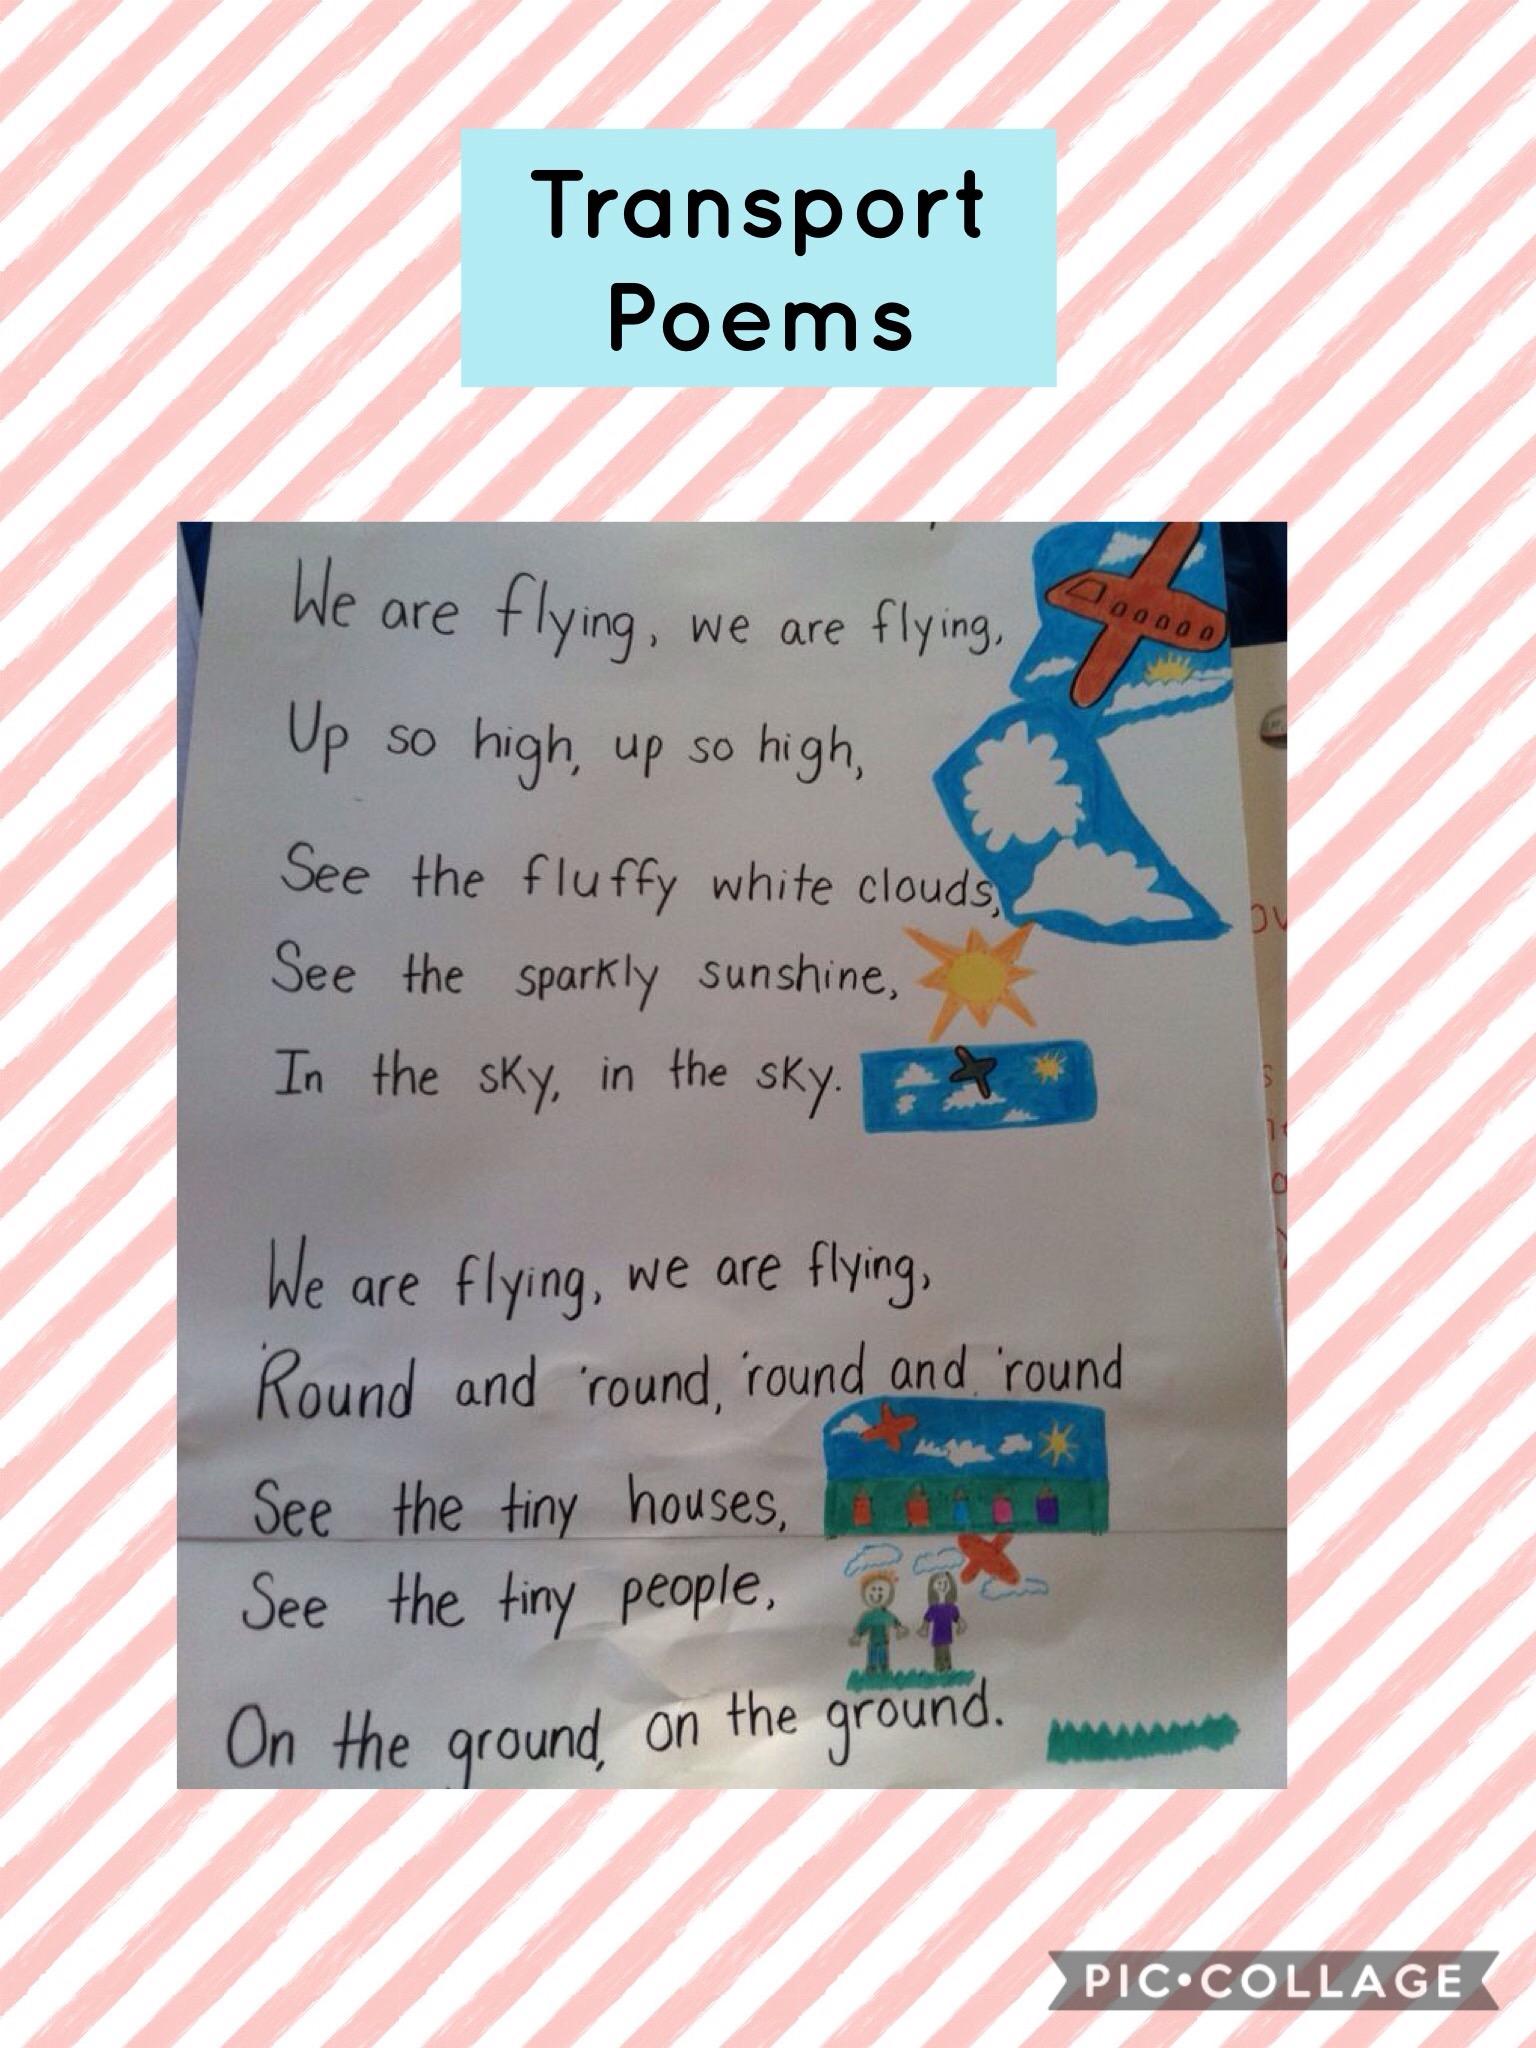 Transport
Poems
We are flying, we are flying,
Up so high, up so high,
See the fluffy white clouds,
See the sparkly sunshine,
In the sky, in the sky.
We are flying, we are flying,
'Round and 'round, 'round and 'round
See the tiny houses,
See the tiny people,
On the ground, on the ground.
PIC•COLLAGE